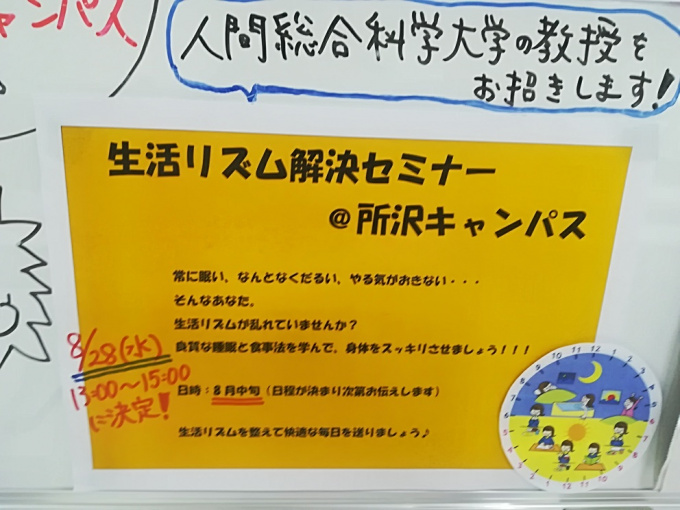 ャンパス
人間総合科学大学の教授を
お招きします!
生活リズム解決セミナー
@所沢キャンパス
常に眠い、なんとなくだるい、やる気がおきない・・・
そんなあなた。
生活リズムが乱れていませんか?
良質な睡眠と食事法を学んで、身体をスッキリさせましょう!!!
8/28(水)
13:00〜15:00
に決定!
日時:8月中旬(日程が決まり次第お伝えします)
生活リズムを整えて快適な毎日を送りましょう♪